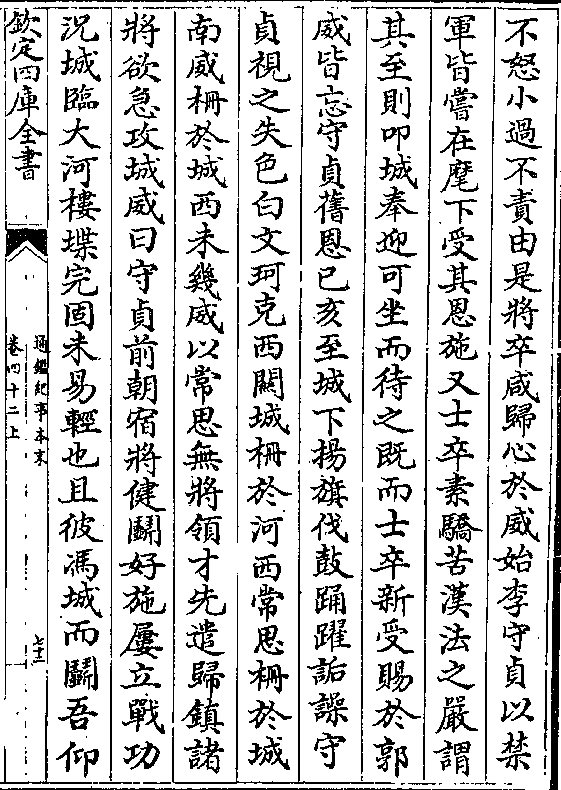 不怒小過不責由是將卒咸歸心於威始李守貞以禁
軍皆嘗在麾下受其恩施又士卒素驕苦漢法之嚴謂
其至則叩城奉迎可坐而待之既而士卒新受賜於郭
威皆忘守貞舊恩已亥至城下揚旗伐鼓踊躍詬譟守
貞視之失色白文珂克西關城柵於河西常思柵於城
南威柵於城西未幾威以常思無將領才先遣歸鎮諸
將欲急攻城威曰守貞前朝宿將健鬭好施屢立戰功
況城臨大河樓堞完固未易輕也且彼馮城而鬭吾仰
欽定四庫全書
通鑑紀事本末
卷四十二上
七十三